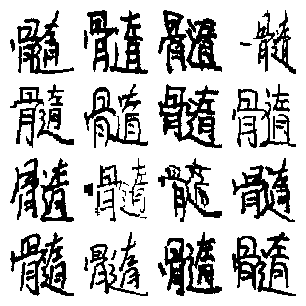 髓髓髓髓
髓髓髓髓
髓髓髓髓
髓髓髓髓